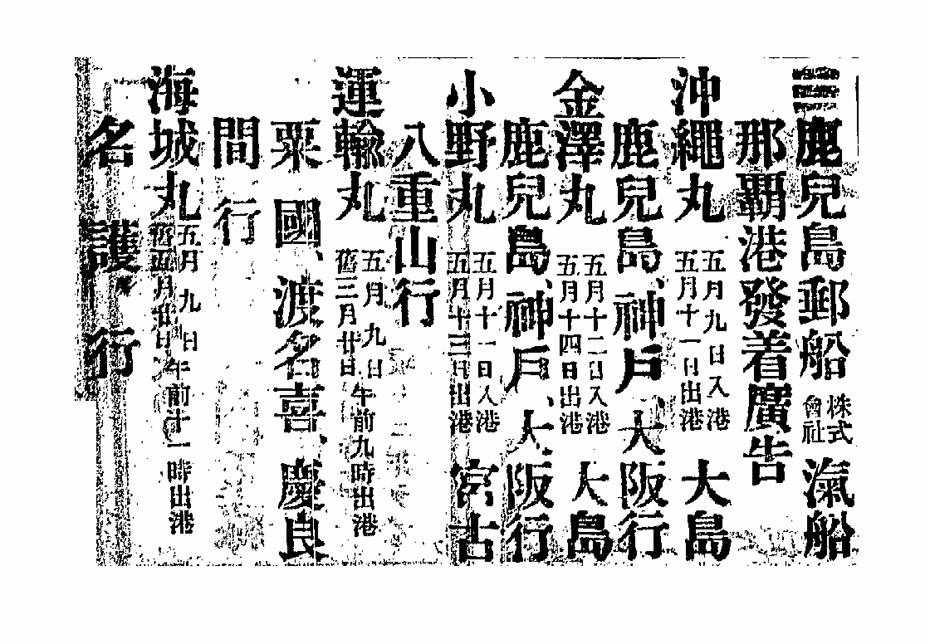 鹿兒島郵船株式會社滊船
那覇港發着廣告
沖繩丸 五月九日入港 五月十一日出港 大島
鹿兒島、神戶、大阪行
金澤丸 五月十二日入港 五月十四日出港 大島
鹿兒島、神戶、大阪行
小野丸 五月十一日入港 五月十三日出港 宮古
八重山行
運輸丸 五月九日 舊三月廿日 午前九時出港
粟國、渡名喜、慶良
間行
海城丸 五月九日 午前十一時出港
名護行